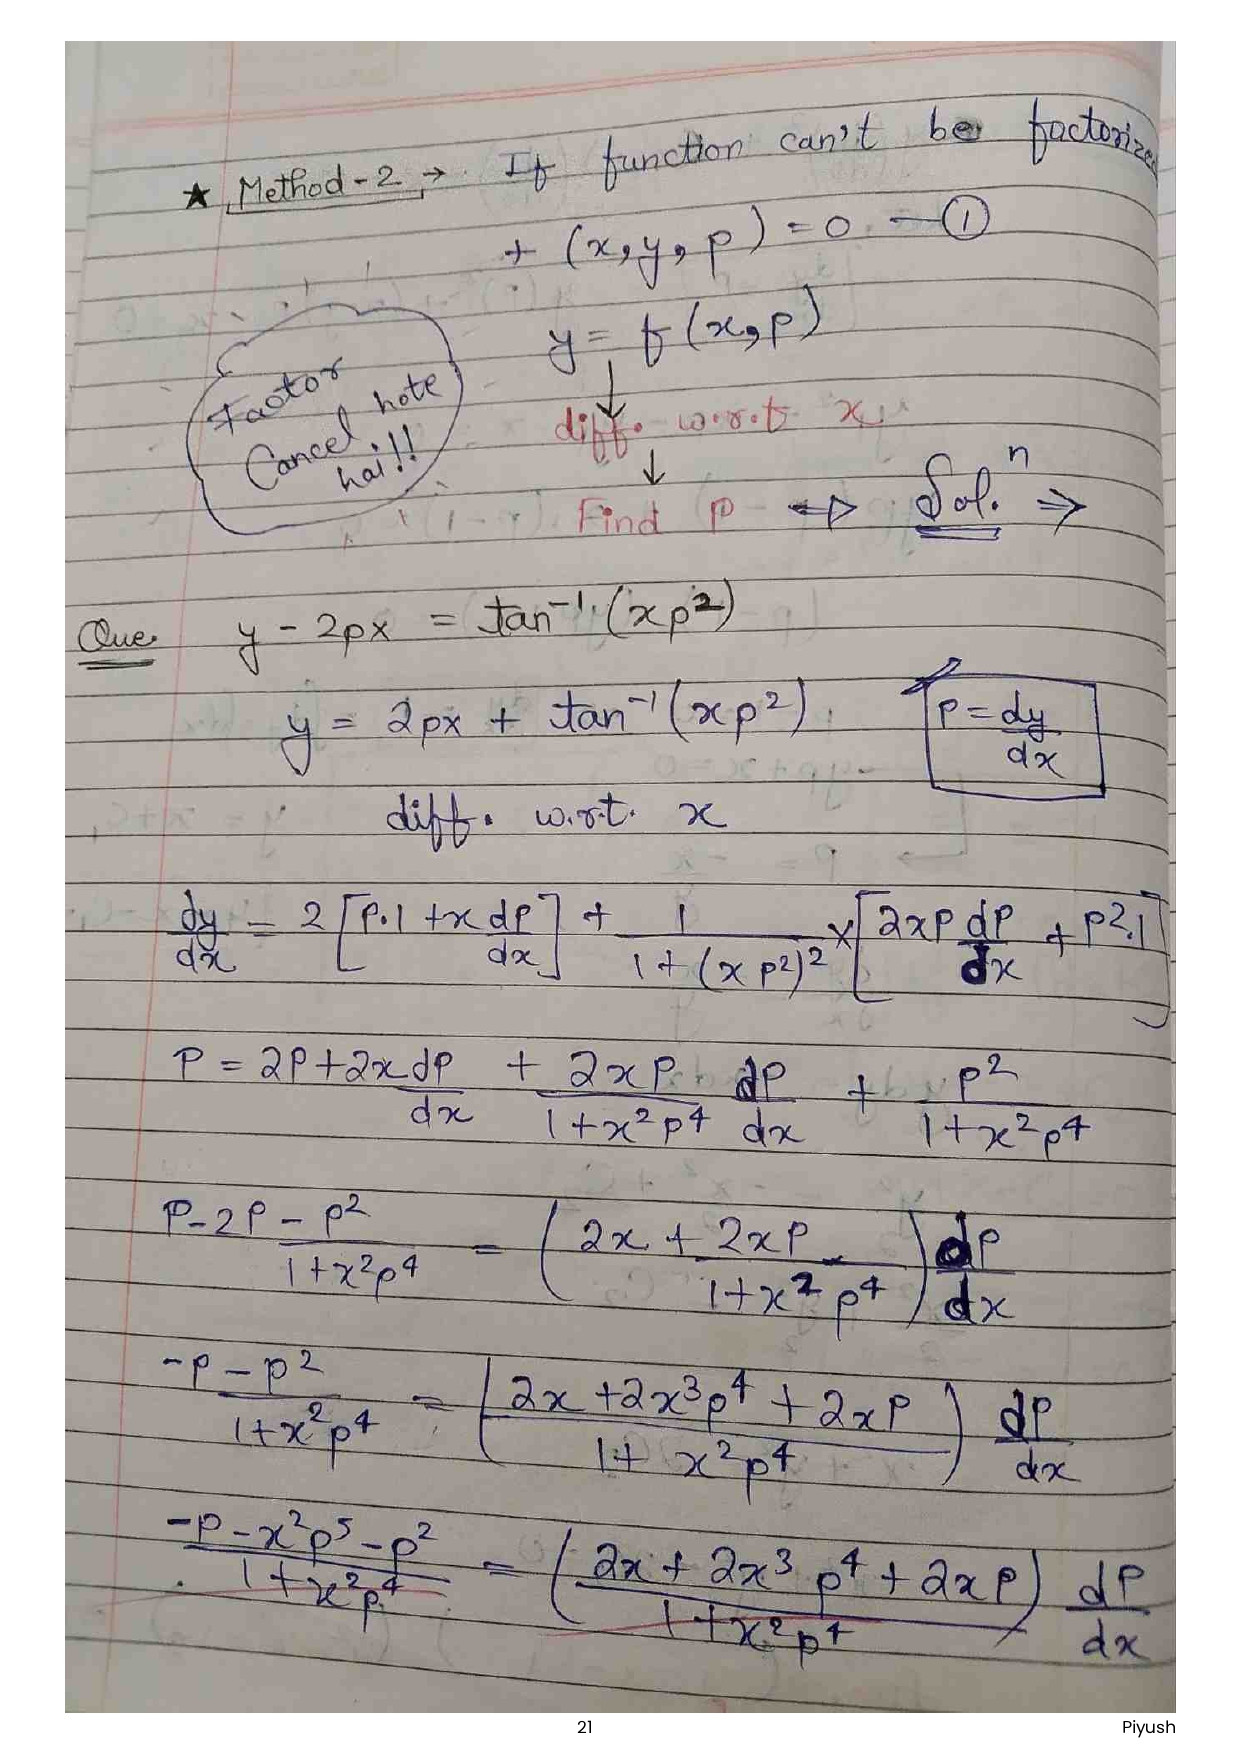 ★ Method-2 → If function can't be factorize
+ (x, y, p) = 0 — ①
y = f (x, p)
↓
diff. w.r.t. x
↓
Find p ⇒ Sol.ⁿ ⇒
Factor
Cancel hote
hai!!
Que. y - 2px = tan⁻¹ (xp²)
y = 2px + tan⁻¹ (xp²)
p = dy/dx
diff. w.r.t. x
dy/dx = 2 [p.1 + x dp/dx] + 1/(1+(xp²)²) × [2xp dp/dx + p².1]
p = 2p + 2x dp/dx + 2xp/(1+x²p⁴) dp/dx + p²/(1+x²p⁴)
p - 2p - p²/(1+x²p⁴) = (2x + 2xp/(1+x²p⁴)) dp/dx
-p - p²/(1+x²p⁴) = ((2x + 2x³p⁴ + 2xp)/(1+x²p⁴)) dp/dx
(-p - x²p⁵ - p²)/(1+x²p⁴) = ((2x + 2x³p⁴ + 2xp)/(1+x²p⁴)) dp/dx
21 Piyush